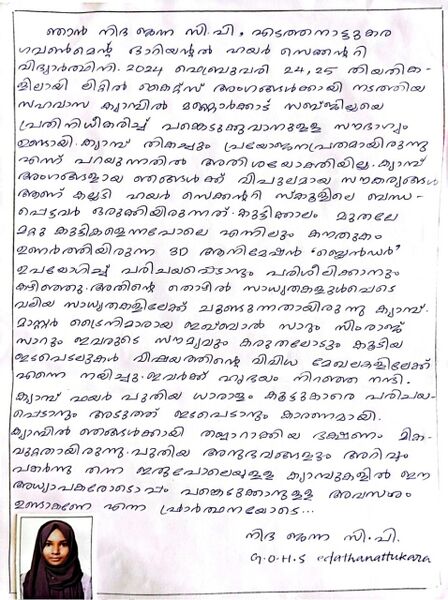 ഞാൻ നിദ ജന്ന സി.പി, എടത്തനാട്ടുകര
ഗവൺമെന്റ് ഓറിയന്റൽ ഹയർ സെക്കന്ററി
വിദ്യാർത്ഥിനി. 2024 ഫെബ്രുവരി 24,25 തിയതിക-
ളിലായി ലിറ്റിൽ കൈറ്റ്സ് അംഗങ്ങൾക്കായി നടത്തിയ
സഹവാസ ക്യാമ്പിൽ മണ്ണാർക്കാട് സബ്ജില്ലയെ
പ്രതിനിധീകരിച്ച് പങ്കെടുക്കുവാനുള്ള സൗഭാഗ്യം
ഉണ്ടായി. ക്യാമ്പ് തികച്ചും പ്രയോജനപ്രദമായിരുന്നു
എന്ന് പറയുന്നതിൽ അതിശയോക്തിയില്ല. ക്യാമ്പ്
അംഗങ്ങളായ ഞങ്ങൾക്ക് വിപുലമായ സൗകര്യങ്ങൾ
ആണ് കല്ലടി ഹയർ സെക്കന്ററി സ്കൂളിലെ ബന്ധ-
പ്പെട്ടവർ ഒരുക്കിയിരുന്നത്. കുട്ടിക്കാലം മുതലേ
മറ്റു കുട്ടികളെന്നപോലെ എന്നിലും കൗതുകം
ഉണർത്തിയിരുന്ന 3D ആനിമേഷൻ 'ബ്ലെൻഡർ'
ഉപയോഗിച്ച് പരിചയപ്പെടാനും പരിശീലിക്കാനും
കഴിഞ്ഞു. അതിന്റെ തൊഴിൽ സാധ്യതകളുൾപ്പെടെ
വലിയ സാധ്യതകളിലേക്ക് ചൂണ്ടുന്നതായിരുന്നു ക്യാമ്പ്.
മാസ്റ്റർ ട്രൈനിമാരായ ഇഖ്ബാൽ സാറും സിംരാജ്
സാറും ഇവരുടെ സൗമ്യവും കരുതലോടും കൂടിയ
ഇടപെടലുകൾ വിഷയത്തിന്റെ വിവിധ മേഖലകളിലേക്ക്
എന്നെ നയിച്ചു. ഇവർക്ക് ഹൃദയം നിറഞ്ഞ നന്ദി.
ക്യാമ്പ് ഫയർ പുതിയ ധാരാളം കൂട്ടുകാരെ പരിചയ-
പ്പെടാനും അടുത്ത് ഇടപെടാനും കാരണമായി.
ക്യാമ്പിൽ ഞങ്ങൾക്കായി തയ്യാറാക്കിയ ഭക്ഷണം മിക-
വുറ്റതായിരുന്നു. പുതിയ അനുഭവങ്ങളും അറിവും
പകർന്നു തന്ന ഇതുപോലെയുള്ള ക്യാമ്പുകളിൽ ഈ
അധ്യാപകരോടൊപ്പം പങ്കെടുക്കാനുള്ള അവസരം
ഉണ്ടാകണേ എന്ന പ്രാർത്ഥനയോടെ...
നിദ ജന്ന സി.പി.
G.O.H.S edathanattukara